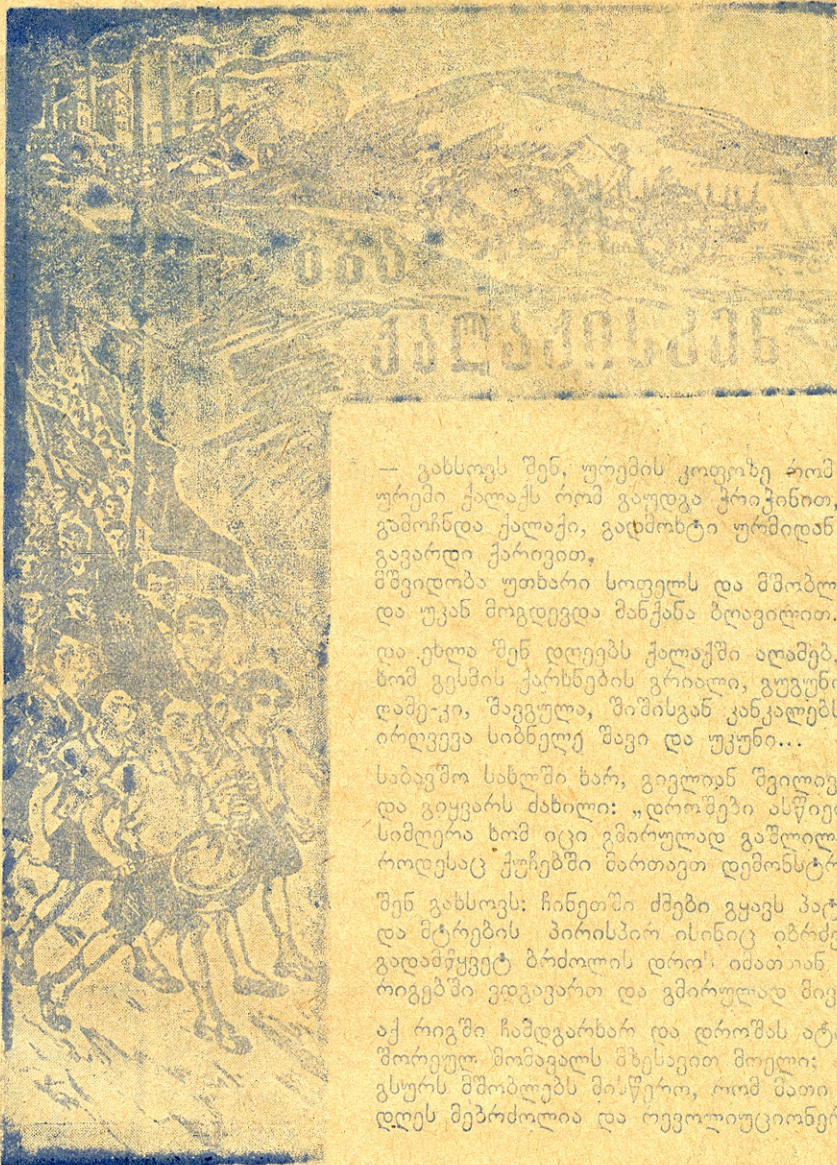 გზა
ქალაქისკენ
— გახსოვს შენ, ურემის კოფოზე რომ
ურემი ქალაქს რომ გაუდგა ჭრიჭინით,
გამოჩნდა ქალაქი, გადმოხტი ურმიდან
გავარდი ქარივით,
მშვიდობა უთხარი სოფელს და მშობლ
და უკან მოგდევდა მანქანა ბღავილით.
და ეხლა შენ დღეებს ქალაქში აღამებ,
ხომ გესმის ქარხნების გრიალი, გუგუნი
ღამე-კი, შავგულა, შიშისგან კანკალებს
ირღვევა სიბნელე შავი და უკუნი...
საბავშო სახლში ხარ, გივლიან შვილივ
და გიყვარს ძახილი: „დროშები ასწიე
სიმღერა ხომ იცი გმირულად გაშლილ
როდესაც ქუჩებში მართავთ დემონსტრ
შენ გახსოვს: ჩინეთში ძმები გყავს პატ
და მტრების პირისპირ ისინიც იბრძ
გადამწყვეტ ბრძოლის დროს იმათთან
რიგებში ვდგავართ და გმირულად მივ
აქ რიგში ჩამდგარხარ და დროშას ატ
შორეულ მომავალს მზესავით მოელი:
გსურს მშობლებს მისწერო, რომ მათი
დღეს მებრძოლია და რევოლიუციონერ